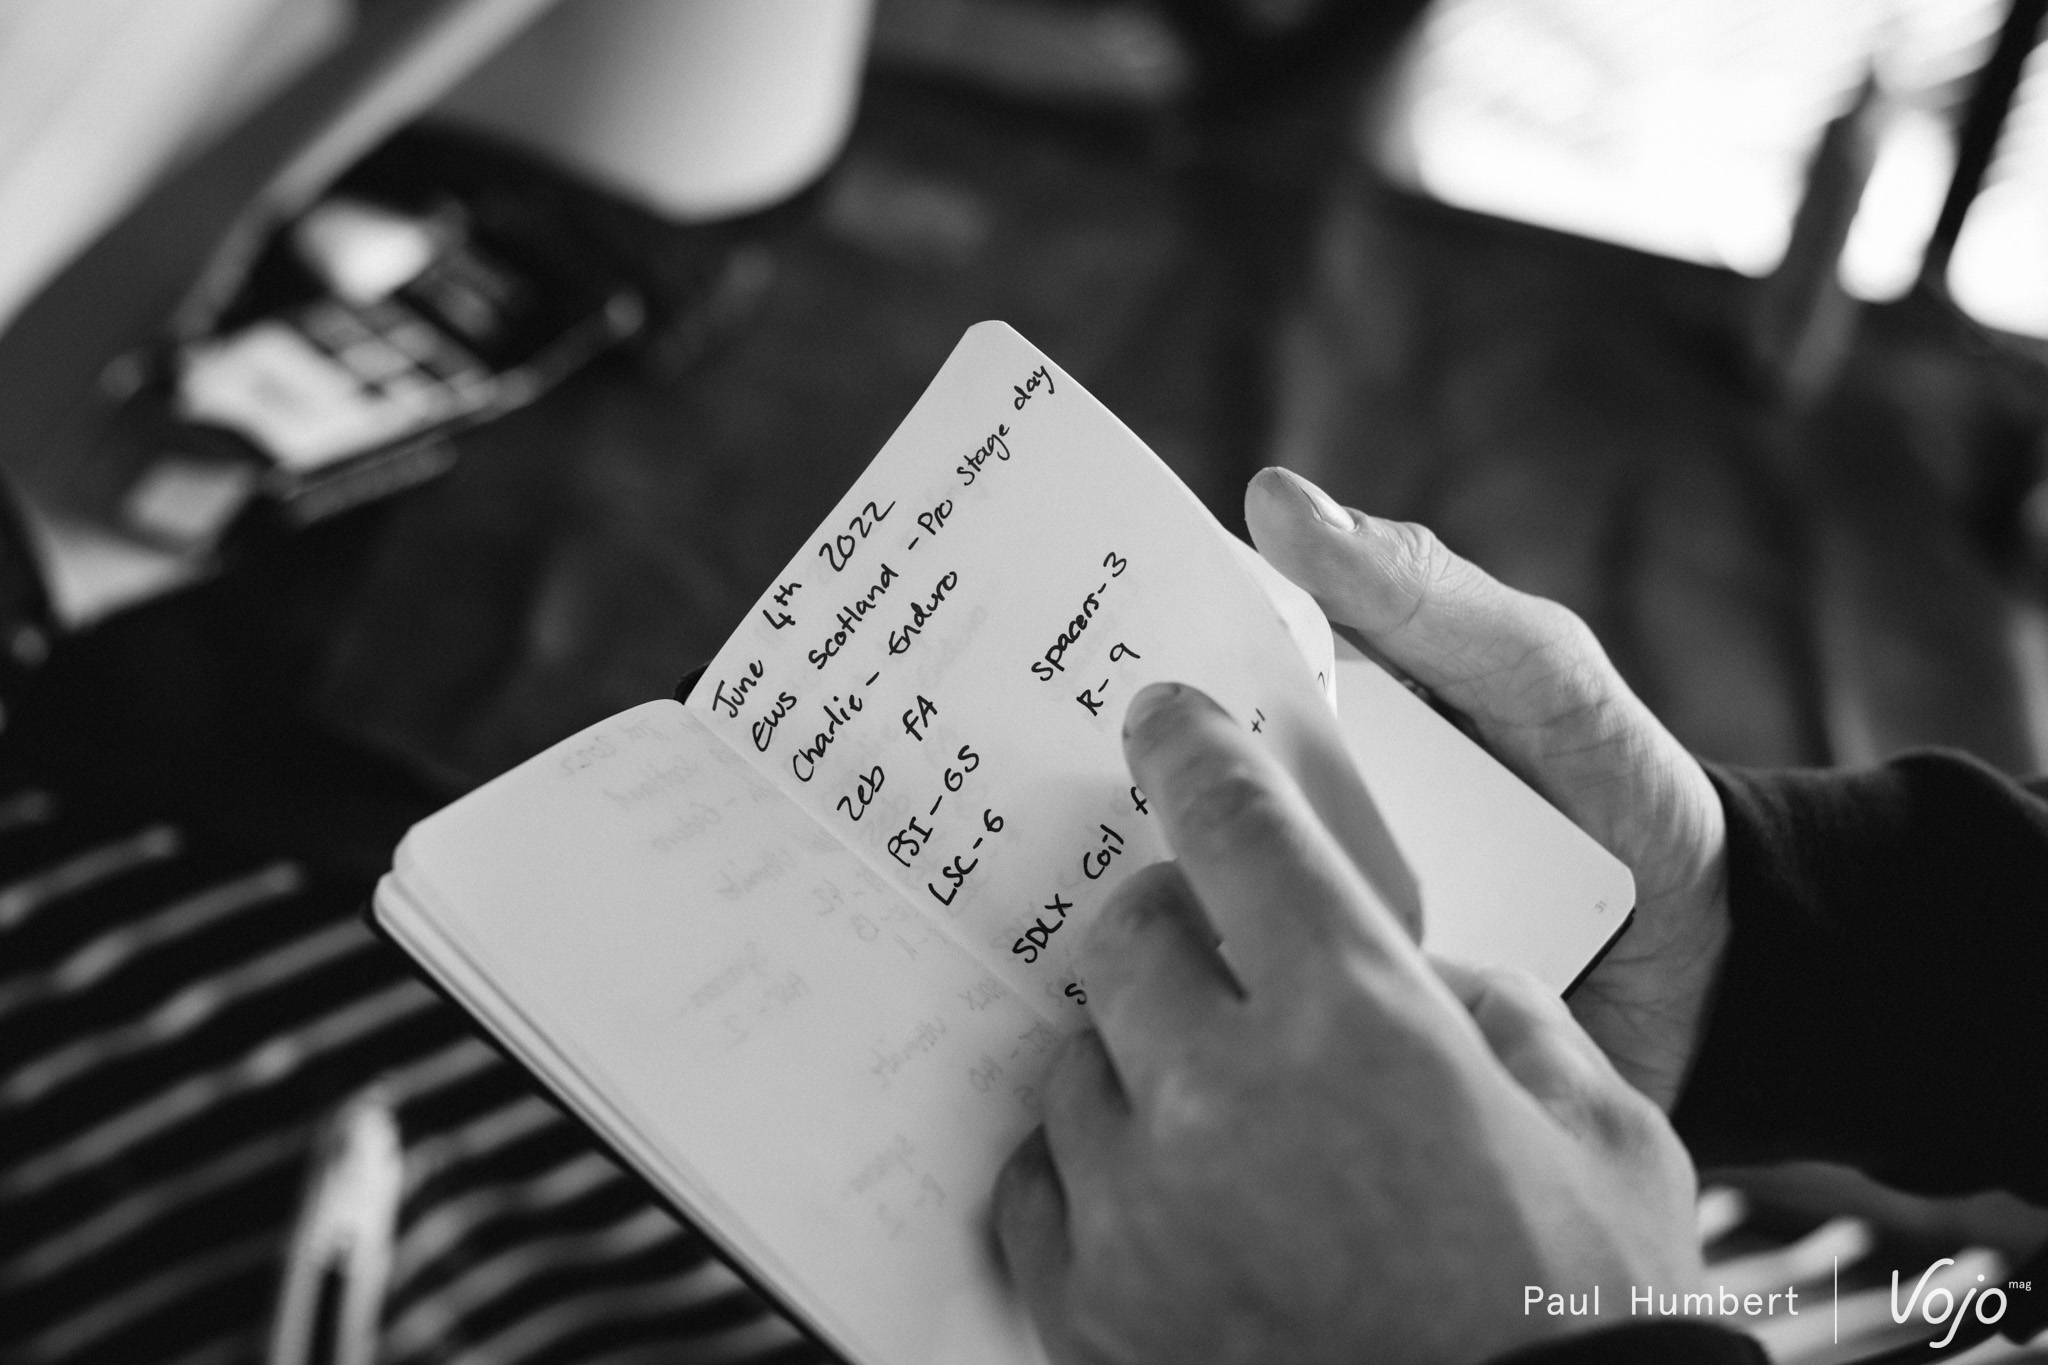 June 4th 2022
EWS Scotland - Pro stage day
Charlie - Enduro
Zeb FA
PSI - 65
Spacers - 3
LSC - 6
R - 9
+1
SDLX Coil
31
Paul Humbert
Vojo mag